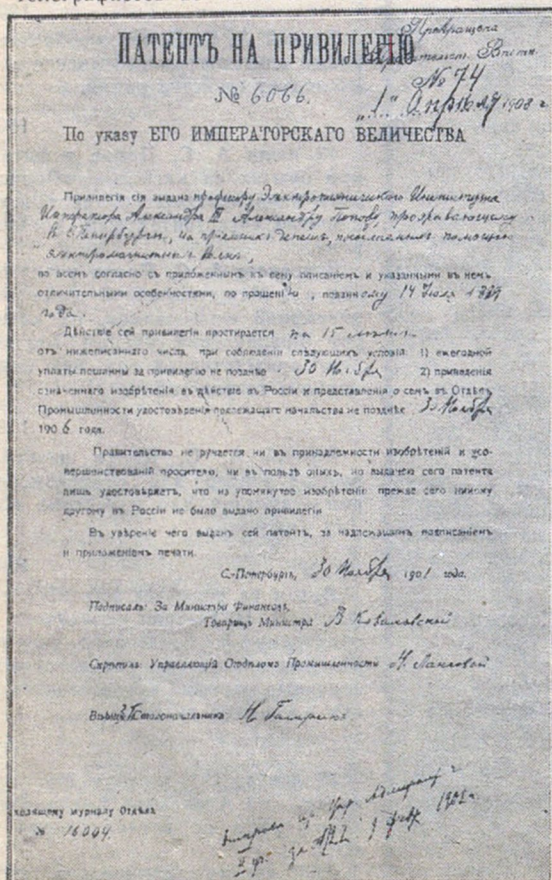 Прекращена
ПАТЕНТЪ НА ПРИВИЛЕГІЮ
№ 74
№ 6066.
„1“ Апрѣля 1908 г
По указу ЕГО ИМПЕРАТОРСКАГО ВЕЛИЧЕСТВА
Привилегія сія выдана профессору Электротехническаго Института
Императора Александра III Александру Попову, проживающему
въ С.Петербургѣ, на пріемникъ депешъ, посылаемыхъ помощью
электромагнитныхъ волнъ,
во всемъ согласно съ приложеннымъ къ сему описаніемъ и указанными въ немъ
отличительными особенностями, по прошенію, поданному 14 Іюля
года.
Дѣйствіе сей привилегіи простирается на 15 лѣтъ
отъ нижеписаннаго числа, при соблюденіи слѣдующихъ условій: 1) ежегодной
уплаты пошлины за привилегію не позднѣе 30 Ноября 2) приведенія
означеннаго изобрѣтенія въ дѣйствіе въ Россіи и представленія о семъ въ Отдѣлъ
Промышленности удостовѣренія подлежащаго начальства не позднѣе 30 Ноября
1906 года.
Правительство не ручается ни въ принадлежности изобрѣтеній и усо-
вершенствованій просителю, ни въ пользѣ оныхъ, но выдачею сего патента
лишь удостовѣряетъ, что на упомянутое изобрѣтеніе прежде сего никому
другому въ Россіи не было выдано привилегіи
Въ увѣреніе чего выданъ сей патентъ, за надлежащимъ подписаніемъ
и приложеніемъ печати.
С.-Петербургъ, 30 Ноября 1901 года.
Подписалъ: За Министра Финансовъ,
Товарищъ Министра В Ковалевскій
Скрѣпилъ: Управляющій Отдѣломъ Промышленности Н. Ланговой
Столоначальника Н
входящему журналу Отдѣла
№ 16004.